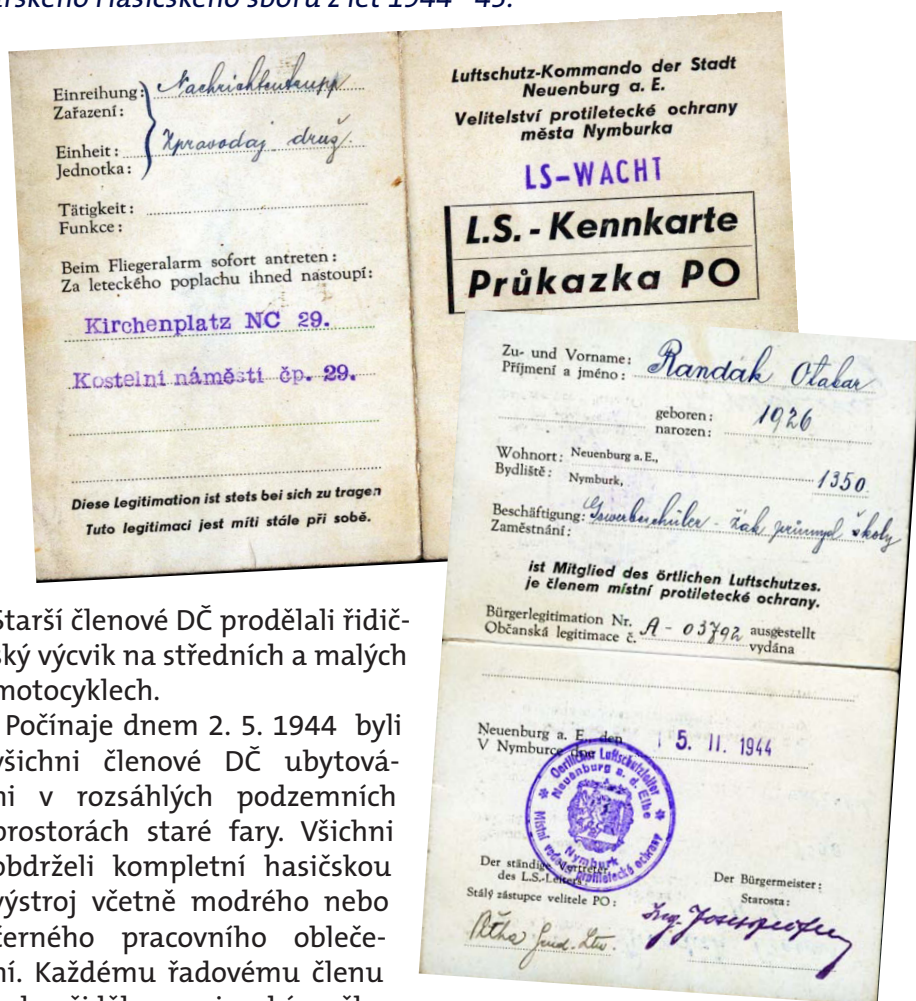 ářského hasičského sboru z let 1944–45.
Einreihung:
Zařazení:
Nachrichtentrupp
Einheit:
Jednotka:
Zpravodaj. druž.
Tätigkeit:
Funkce:
Beim Fliegeralarm sofort antreten:
Za leteckého poplachu ihned nastoupí:
Kirchenplatz NC 29.
Kostelní náměstí čp. 29.
Diese Legitimation ist stets bei sich zu tragen
Tuto legitimaci jest míti stále při sobě.
Luftschutz-Kommando der Stadt
Neuenburg a. E.
Velitelství protiletecké ochrany
města Nymburka
LS-WACHT
L.S.-Kennkarte
Průkazka PO
Zu- und Vorname:
Příjmení a jméno:
Randák Otakar
geboren:
narozen:
1926
Wohnort: Neuenburg a. E.,
Bydliště: Nymburk,
1350.
Beschäftigung:
Zaměstnání:
Gewerbeschüler - žák průmysl školy
ist Mitglied des örtlichen Luftschutzes.
je členem místní protiletecké ochrany.
Bürgerlegitimation Nr.
Občanská legitimace č.
A - 03792
ausgestellt
vydána
Neuenburg a. E., den
V Nymburce dne
5. II. 1944
Oertlicher Luftschutzleiter
Neuenburg a. d. Elbe
Nymburk
protiletecké ochrany
Der ständige Vertreter
des L.S.-Leiters:
Stálý zástupce velitele PO:
Der Bürgermeister:
Starosta:
Ing.
Starší členové DČ prodělali řidič-
ský výcvik na středních a malých
motocyklech.
Počínaje dnem 2. 5. 1944 byli
všichni členové DČ ubytová-
ni v rozsáhlých podzemních
prostorách staré fary. Všichni
obdrželi kompletní hasičskou
výstroj včetně modrého nebo
černého pracovního obleče-
ní. Každému řadovému členu